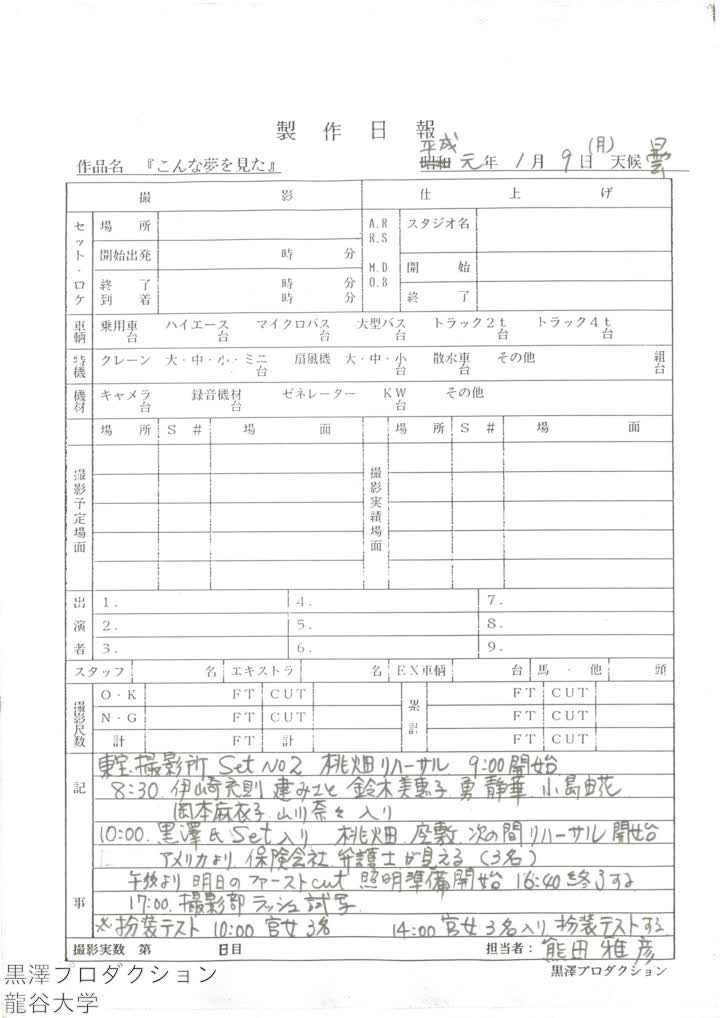 製作日報
作品名 『こんな夢を見た』 平成 昭和 元年 1月 9日 (月) 天候 曇
撮影 仕上げ
セット・ロケ 場所 A.R R.S スタジオ名
開始出発 時 分 M.D O.B 開始
終了 時 分 終了
到着 時 分
車輌 乗用車 台 ハイエース 台 マイクロバス 台 大型バス 台 トラック2t 台 トラック4t 台
特機 クレーン 大・中・小・ミニ 台 扇風機 大・中・小 台 散水車 台 その他 組 台
機材 キャメラ 台 録音機材 台 ゼネレーター KW 台 その他
場所 S# 場面 場所 S# 場面
撮影予定場面 撮影実績場面
出演者 1. 4. 7.
2. 5. 8.
3. 6. 9.
スタッフ 名 エキストラ 名 EX車輌 台 馬・他 頭
撮影尺数 O・K FT CUT 累計 FT CUT
N・G FT CUT FT CUT
計 FT CUT FT CUT
記事
東宝撮影所 Set No2 桃畑リハーサル 9:00開始
8:30. 伊崎充則 建みさと 鈴木美恵子 勇静華 小島由花
岡本麻衣子 山川奈々 入り
10:00. 黒澤氏 Set入り 桃畑. 座敷. 次の間リハーサル 開始
アメリカより、保険会社. 弁護士が見える (3名)
午後より 明日のファーストcut 照明準備開始 16:40終了する
17:00. 撮影部 ラッシュ試写
※扮装テスト 10:00 官女3名 14:00 官女3名入り 扮装テストする
撮影実数 第 日目 担当者: 熊田雅彦
黒澤プロダクション
黒澤プロダクション
龍谷大学